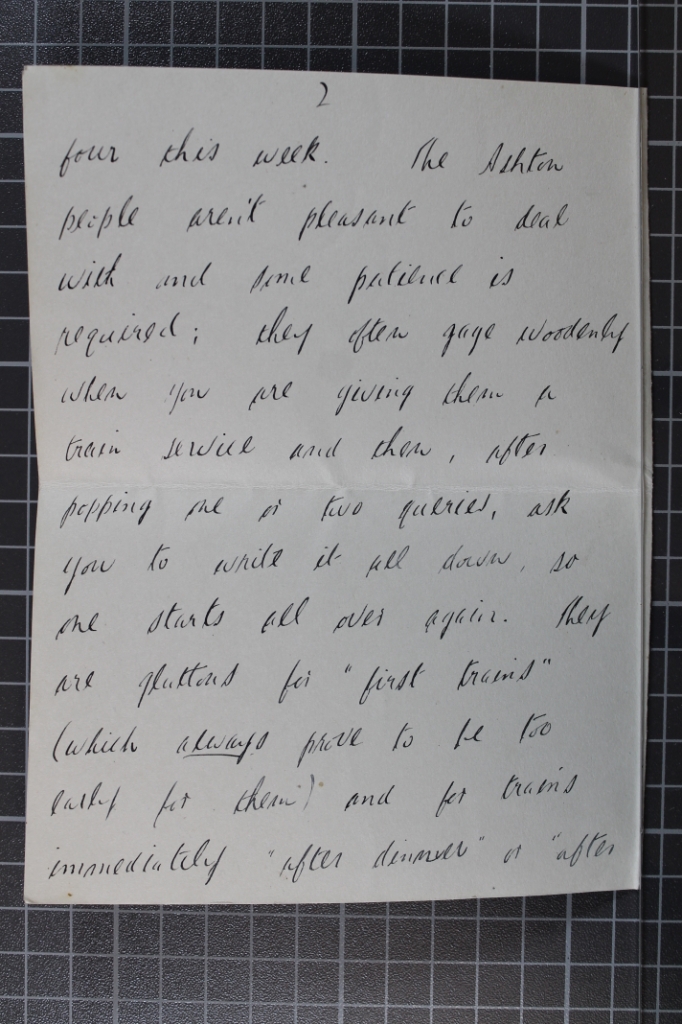 2
four this week. The Ashton
people aren't pleasant to deal
with and some patience is
required; they often gage woodenly
when you are giving them a
train service and then, after
popping one or two queries, ask
you to write it all down, so
one starts all over again. They
are gluttons for "first trains"
(which always prove to be too
early for them) and for trains
immediately "after dinner" or "after